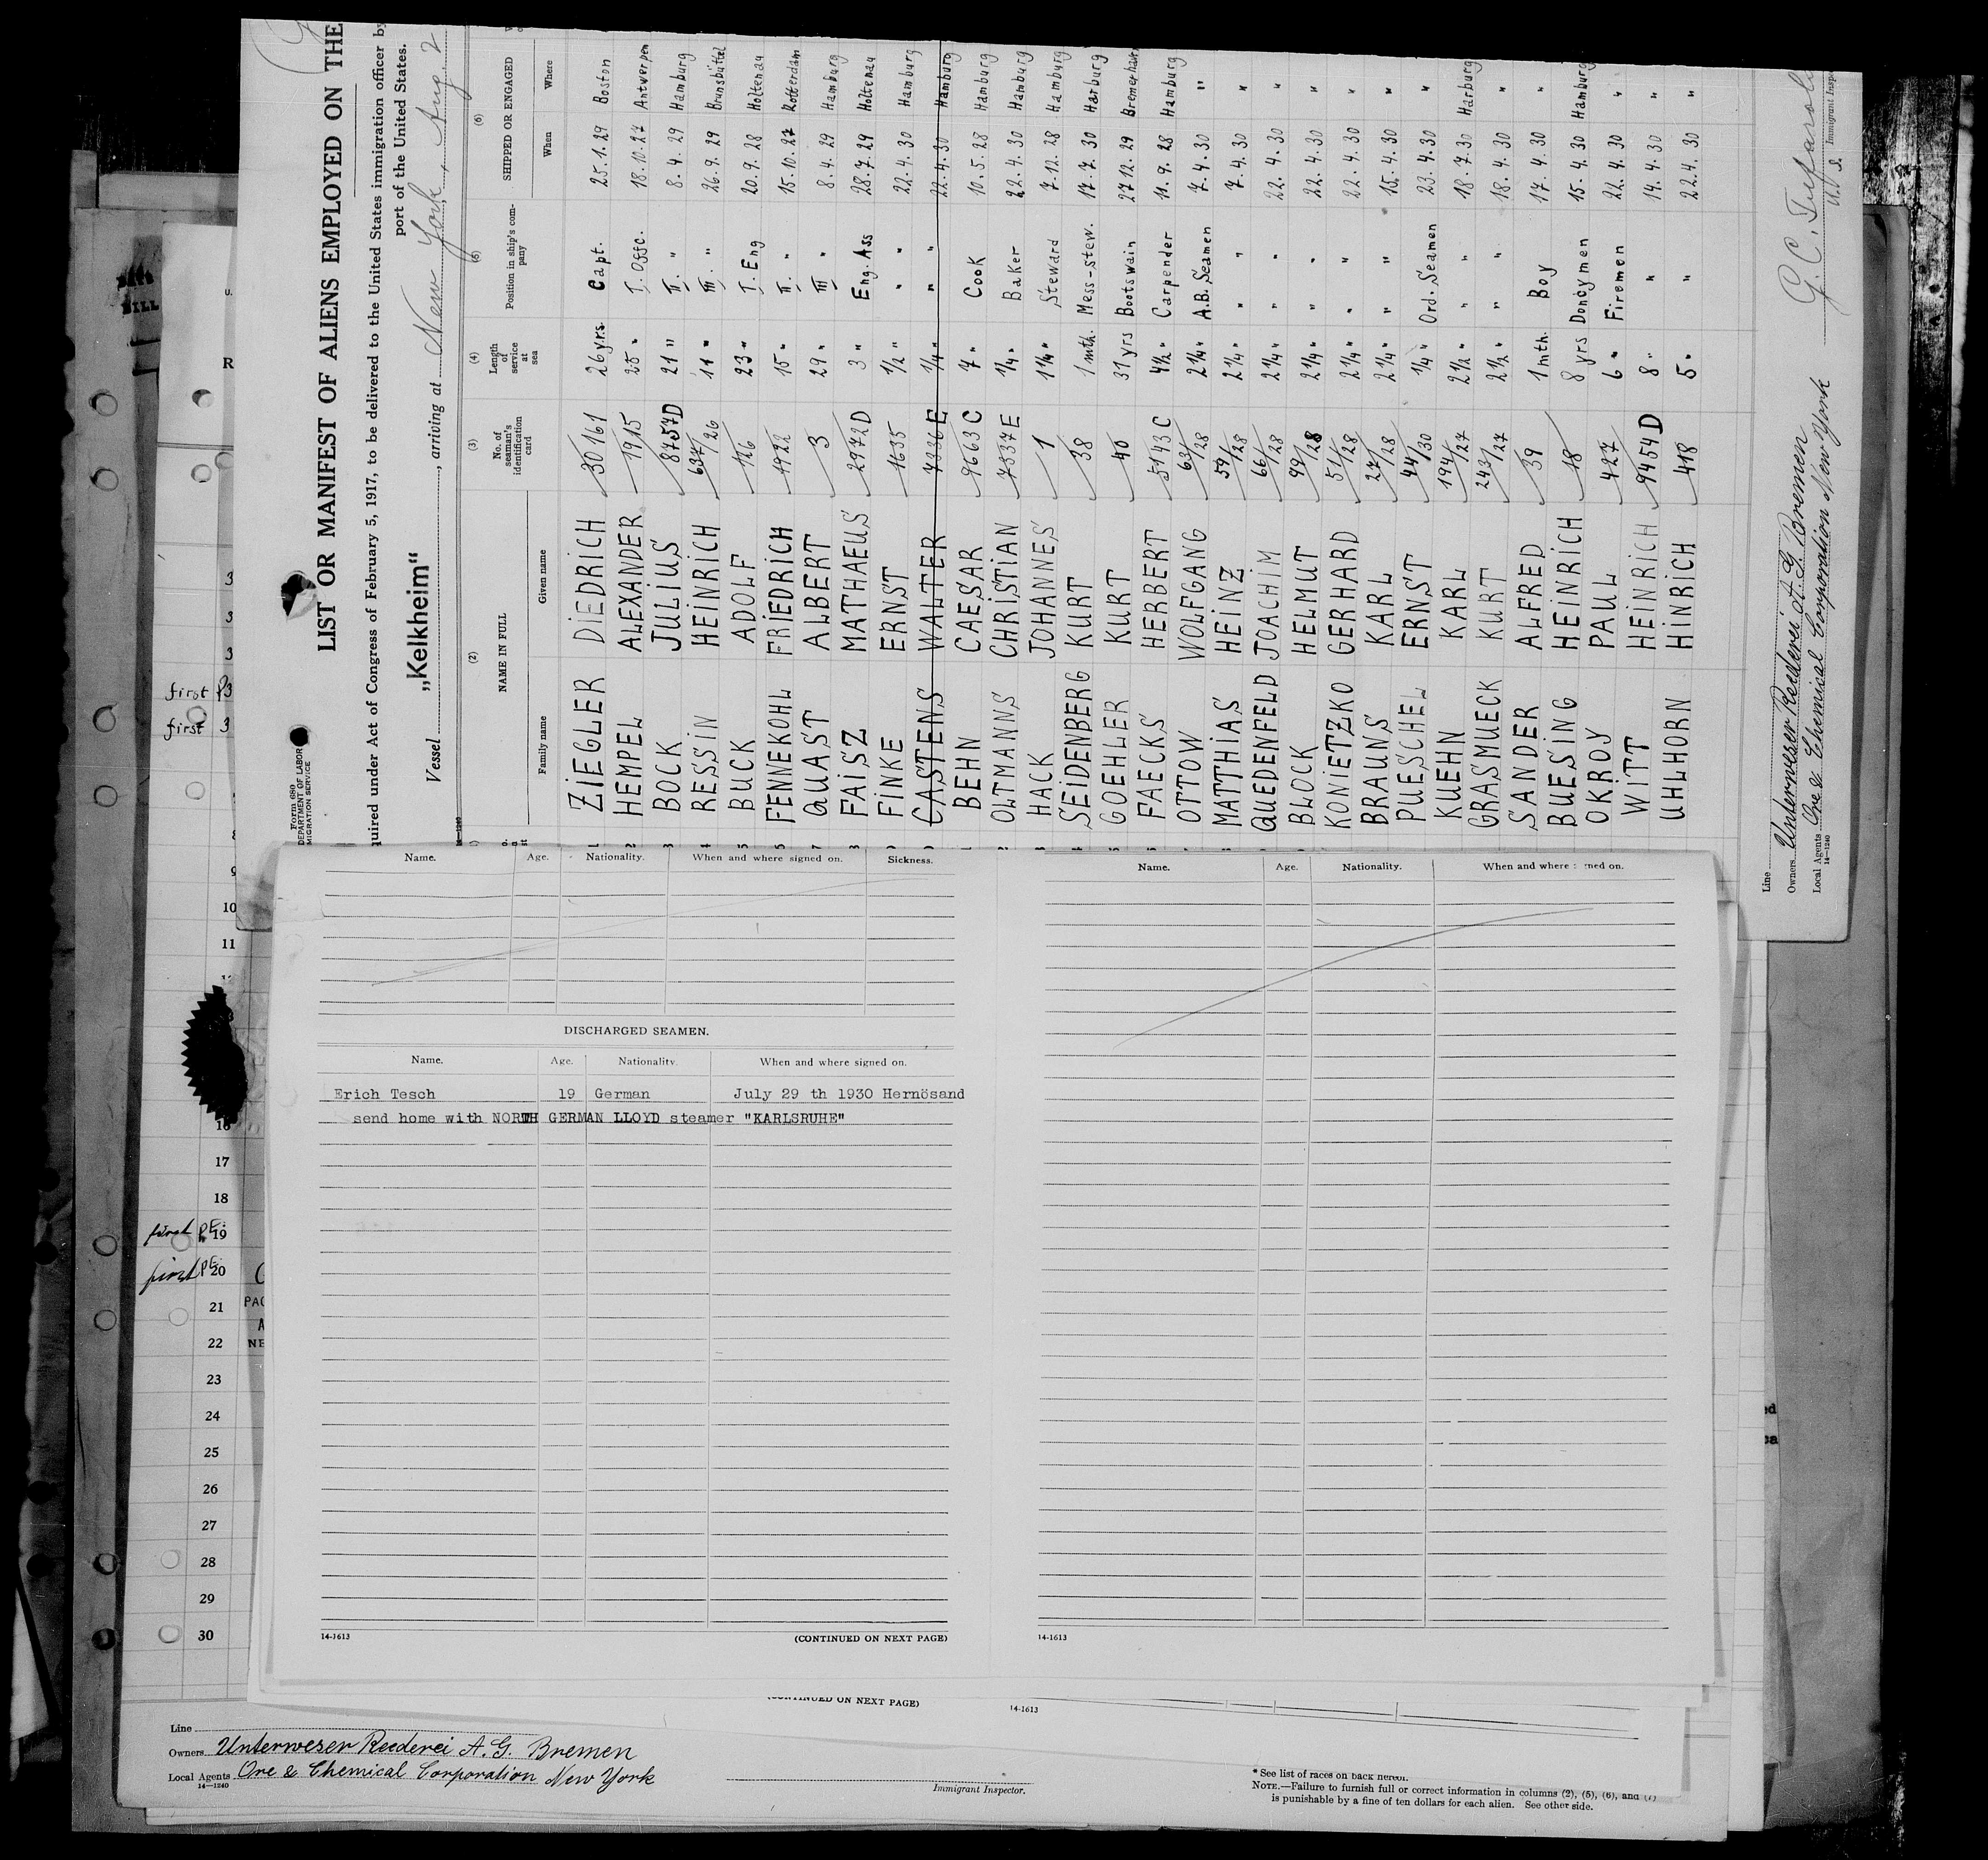 Form 680
DEPARTMENT OF LABOR
MIGRATION SERVICE
LIST OR MANIFEST OF ALIENS EMPLOYED ON THE
quired under Act of Congress of February 5, 1917, to be delivered to the United States immigration officer by
port of the United States.
Vessel „Kelkheim“, arriving at New York, Aug 2
(2) (3) (4) (5) (6)
NAME IN FULL No. of seaman's identification card Length of service at sea Position in ship's company SHIPPED OR ENGAGED
Family name Given name When Where
1 ZIEGLER DIEDRICH 30161 26 yrs. Capt. 25.1.29 Boston
HEMPEL ALEXANDER 1915 25 " I. Offc. 18.10.27 Antwerpen
3 BOCK JULIUS 8757D 21 " II. " 8.4.29 Hamburg
4 RESSIN HEINRICH 637/26 11 " III. " 26.9.29 Brunsbüttel
5 BUCK ADOLF 126 23 " I. Eng 20.9.28 Holtenau
FENNEKOHL FRIEDRICH 1922 15 " II. " 15.10.27 Rotterdam
7 QUAST ALBERT 3 29 " III " 8.4.29 Hamburg
FAISZ MATHAEUS 2972D 3 " Eng. Ass 28.7.29 Holtenau
FINKE ERNST 1635 1/2 " " 22.4.30 Hamburg
CASTENS WALTER 7336E 1/4 " " " 22.4.30 Hamburg
BEHN CAESAR 9663C 7 " Cook 10.5.28 Hamburg
OLTMANNS CHRISTIAN 7837E 1/4 " Baker 22.4.30 Hamburg
HACK JOHANNES 1 1 1/4 " Steward 7.12.28 Hamburg
SEIDENBERG KURT 38 1 mth. Mess-stew. 17.7.30 Harburg
GOEHLER KURT 40 31 yrs Bootswain 27.12.29 Bremerhav
FAECKS HERBERT 5143C 4 1/2 " Carpender 11.9.28 Hamburg
OTTOW WOLFGANG 63/28 2 1/4 " A.B. Seamen 7.4.30 "
MATTHIAS HEINZ 59/28 2 1/4 " " 7.4.30 "
QUEDENFELD JOACHIM 66/28 2 1/4 " " 22.4.30 "
BLOCK HELMUT 99/28 2 1/4 " " 22.4.30 "
KONIETZKO GERHARD 51/28 2 1/4 " " 22.4.30 "
BRAUNS KARL 27/28 2 1/4 " " 15.4.30 "
PUESCHEL ERNST 44/30 1/4 " Ord. Seamen 23.4.30 "
KUEHN KARL 194/27 2 1/2 " " 18.7.30 Harburg
GRASMUECK KURT 243/27 2 1/2 " " 18.4.30 "
SANDER ALFRED 39 1 mth. Boy 17.4.30 "
BUESING HEINRICH 18 8 yrs Donqymen 15.4.30 Hamburg
OKROY PAUL 427 6 " Firemen 22.4.30 "
WITT HEINRICH 9454D 8 " " 14.4.30 "
UHLHORN HINRICH 418 5 " " 22.4.30 "
Line
Owners Unterweser Reederei A.G. Bremen
Local Agents Ore & Chemical Corporation New York
14—1240
Immigrant Insp
BILL
R
3
3
3
first 3
first 3
8
9
10
11
16
17
18
first P.E. 19
first P.E. 20
21
22
23
24
25
26
27
28
29
30
PAC
A
NE
Name. Age. Nationality. When and where signed on. Sickness.
DISCHARGED SEAMEN.
Name. Age. Nationality. When and where signed on.
Erich Tesch 19 German July 29 th 1930 Hernösand
send home with NORTH GERMAN LLOYD steamer "KARLSRUHE"
14-1613 (CONTINUED ON NEXT PAGE)
Name. Age. Nationality. When and where ned on.
14-1613
(CONTINUED ON NEXT PAGE) 14-1613
Line
Owners Unterweser Reederei A.G. Bremen
Local Agents Ore & Chemical Corporation New York
14—1240
Immigrant Inspector.
* See list of races on back hereof.
NOTE.—Failure to furnish full or correct information in columns (2), (5), (6), and (7)
is punishable by a fine of ten dollars for each alien. See other side.